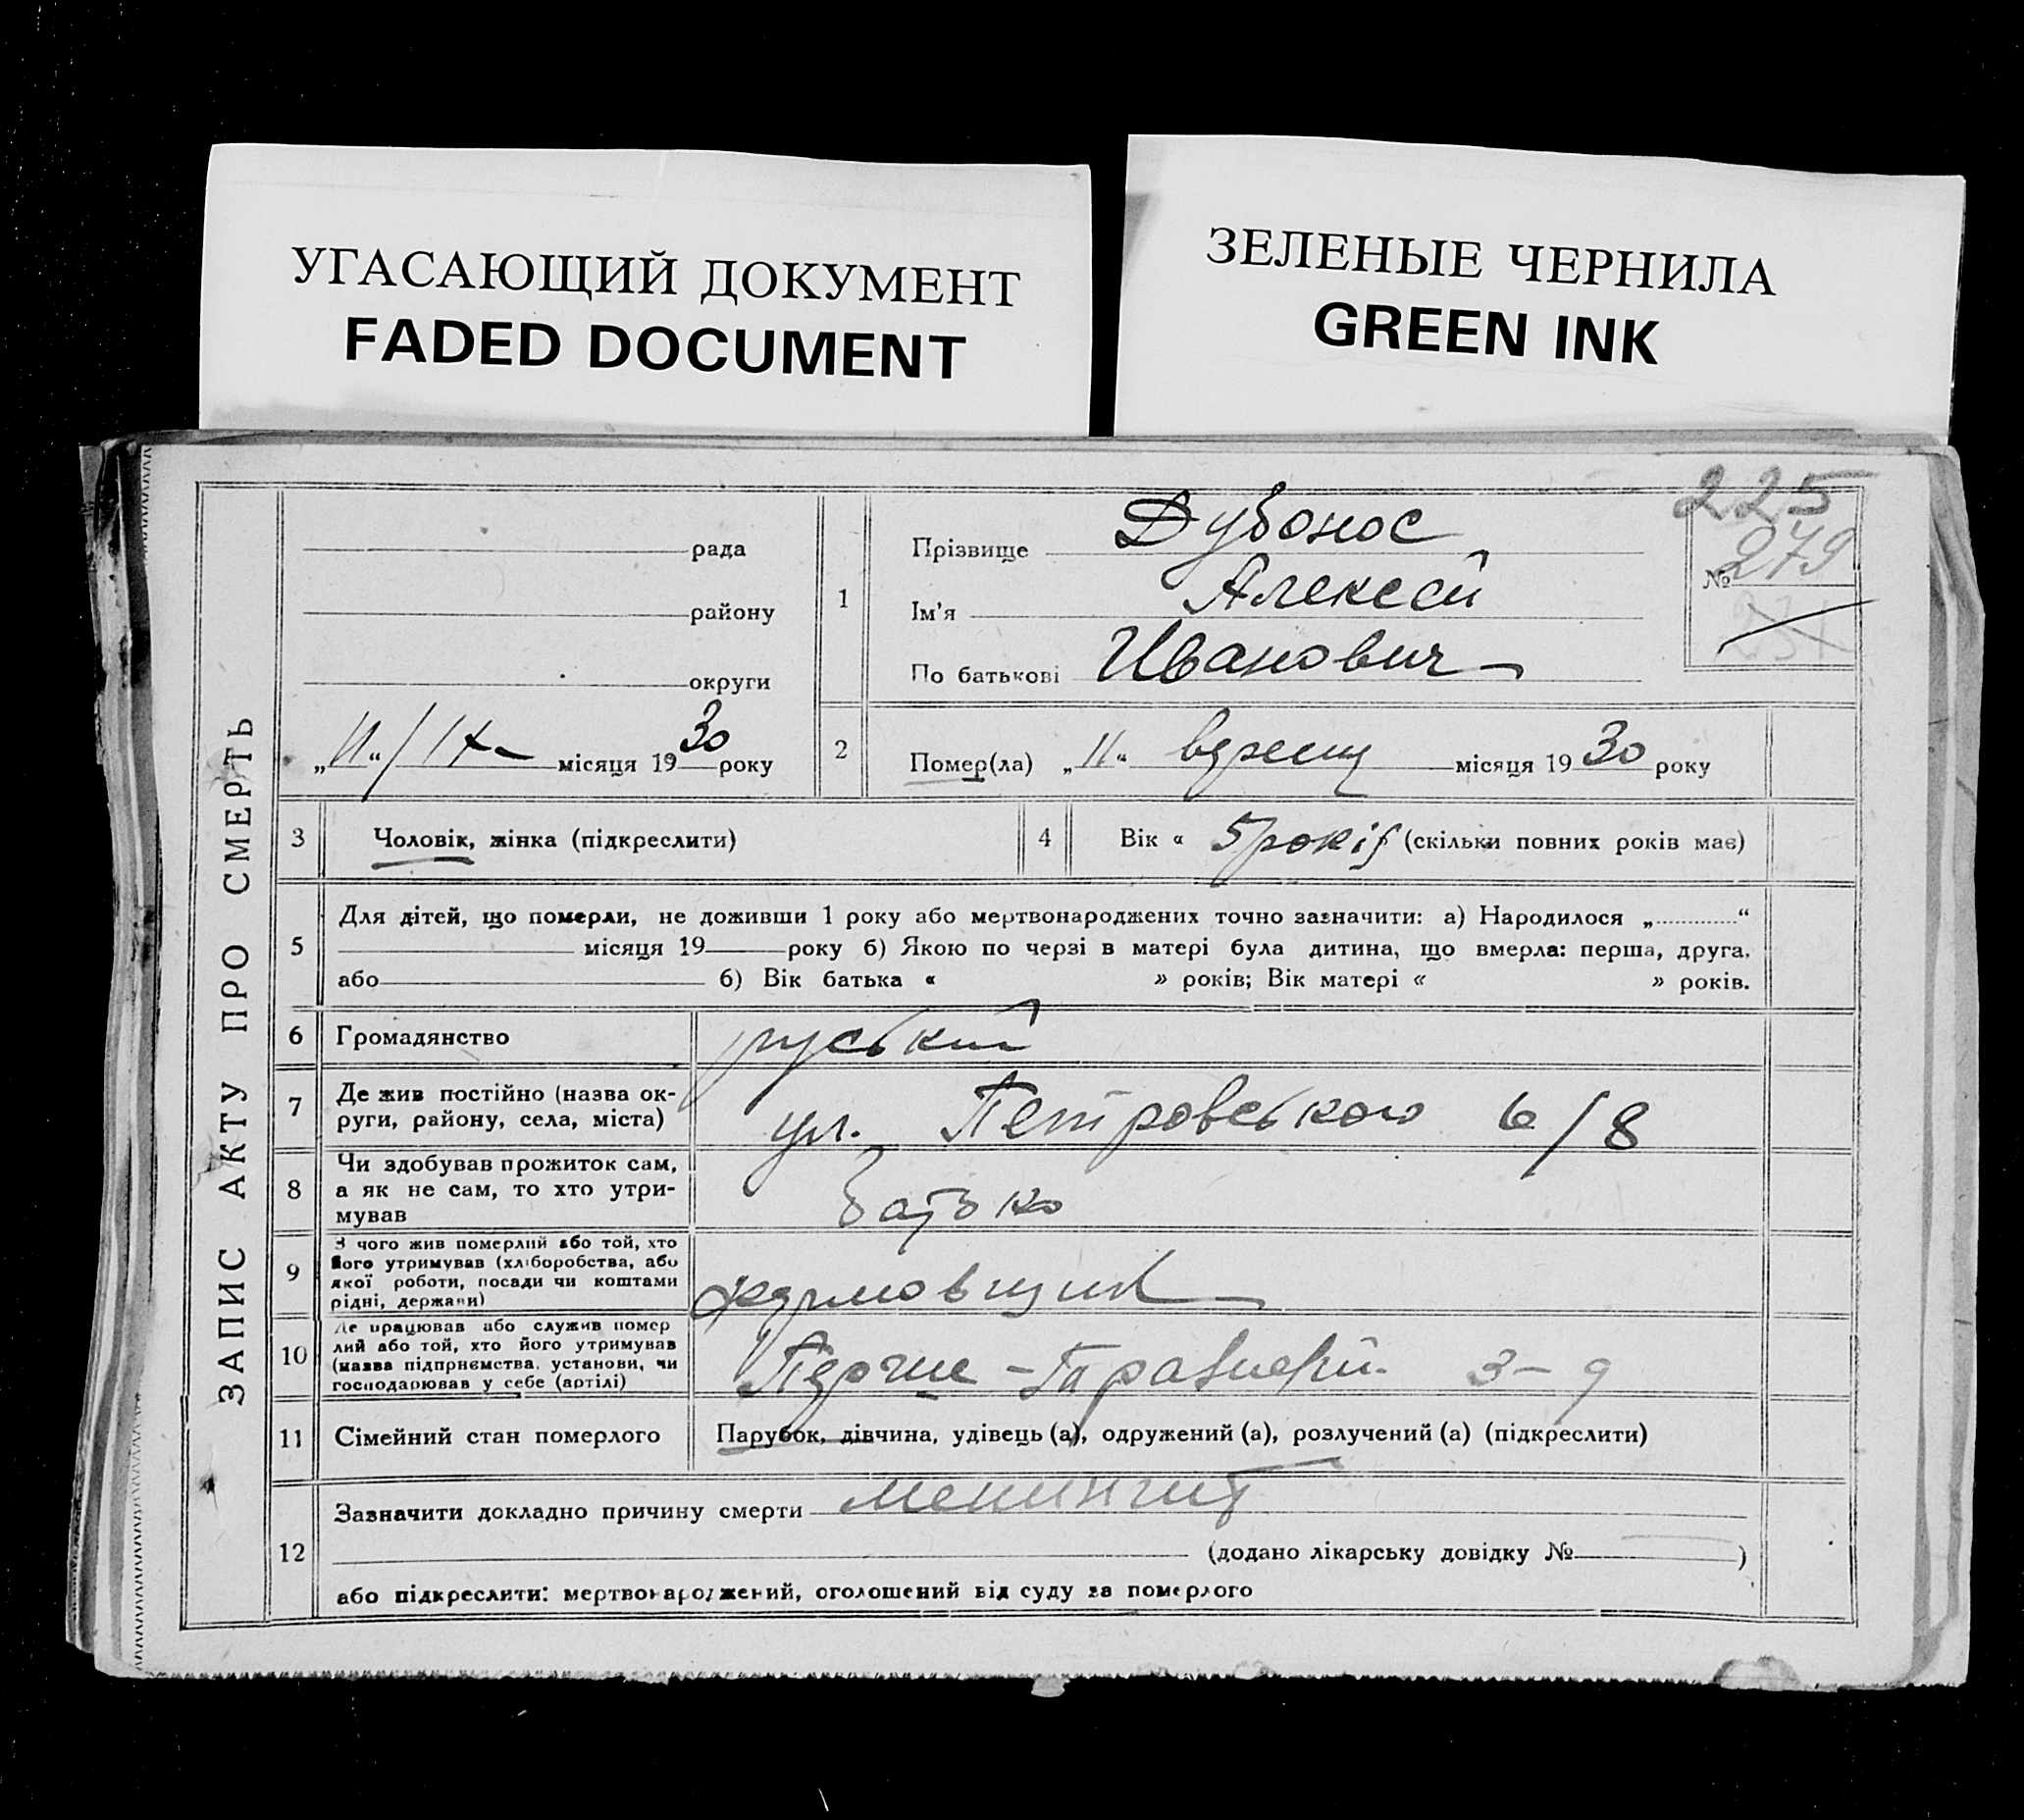 УГАСАЮЩИЙ ДОКУМЕНТ
FADED DOCUMENT
ЗЕЛЕНЫЕ ЧЕРНИЛА
GREEN INK
ЗАПИС АКТУ ПРО СМЕРТЬ
225
№ 279
рада
району
округи
„11“/IX місяця 1930 року
1
Прізвище Дубонос
Ім'я Алексей
По батькові Иванович
2
Помер(ла) „11“ вересня місяця 1930 року
3 Чоловік, жінка (підкреслити)
4 Вік « 5 років (скільки повних років має)
5
Для дітей, що померли, не доживши 1 року або мертвонароджених точно зазначити: а) Народилося „ “
місяця 19 року б) Якою по черзі в матері була дитина, що вмерла: перша, друга,
або б) Вік батька « » років; Вік матері « » років.
6 Громадянство руський
7
Де жив постійно (назва ок-
руги, району, села, міста)
ул. Петровського 6/8
8
Чи здобував прожиток сам,
а як не сам, то хто утри-
мував
батько
9
З чого жив померлий або той, хто
його утримував (хліборобства, або
якої роботи, посади чи коштами
рідні, держави)
формовщик
10
Де працював або служив помер
лий або той, хто його утримував
(назва підприємства, установи, чи
господарював у себе (артілі)
3-д
11 Сімейний стан померлого Парубок, дівчина, удівець (а), одружений (а), розлучений (а) (підкреслити)
12
Зазначити докладно причину смерти менингит
(додано лікарську довідку № )
або підкреслити: мертвонароджений, оголошений від суду за померлого